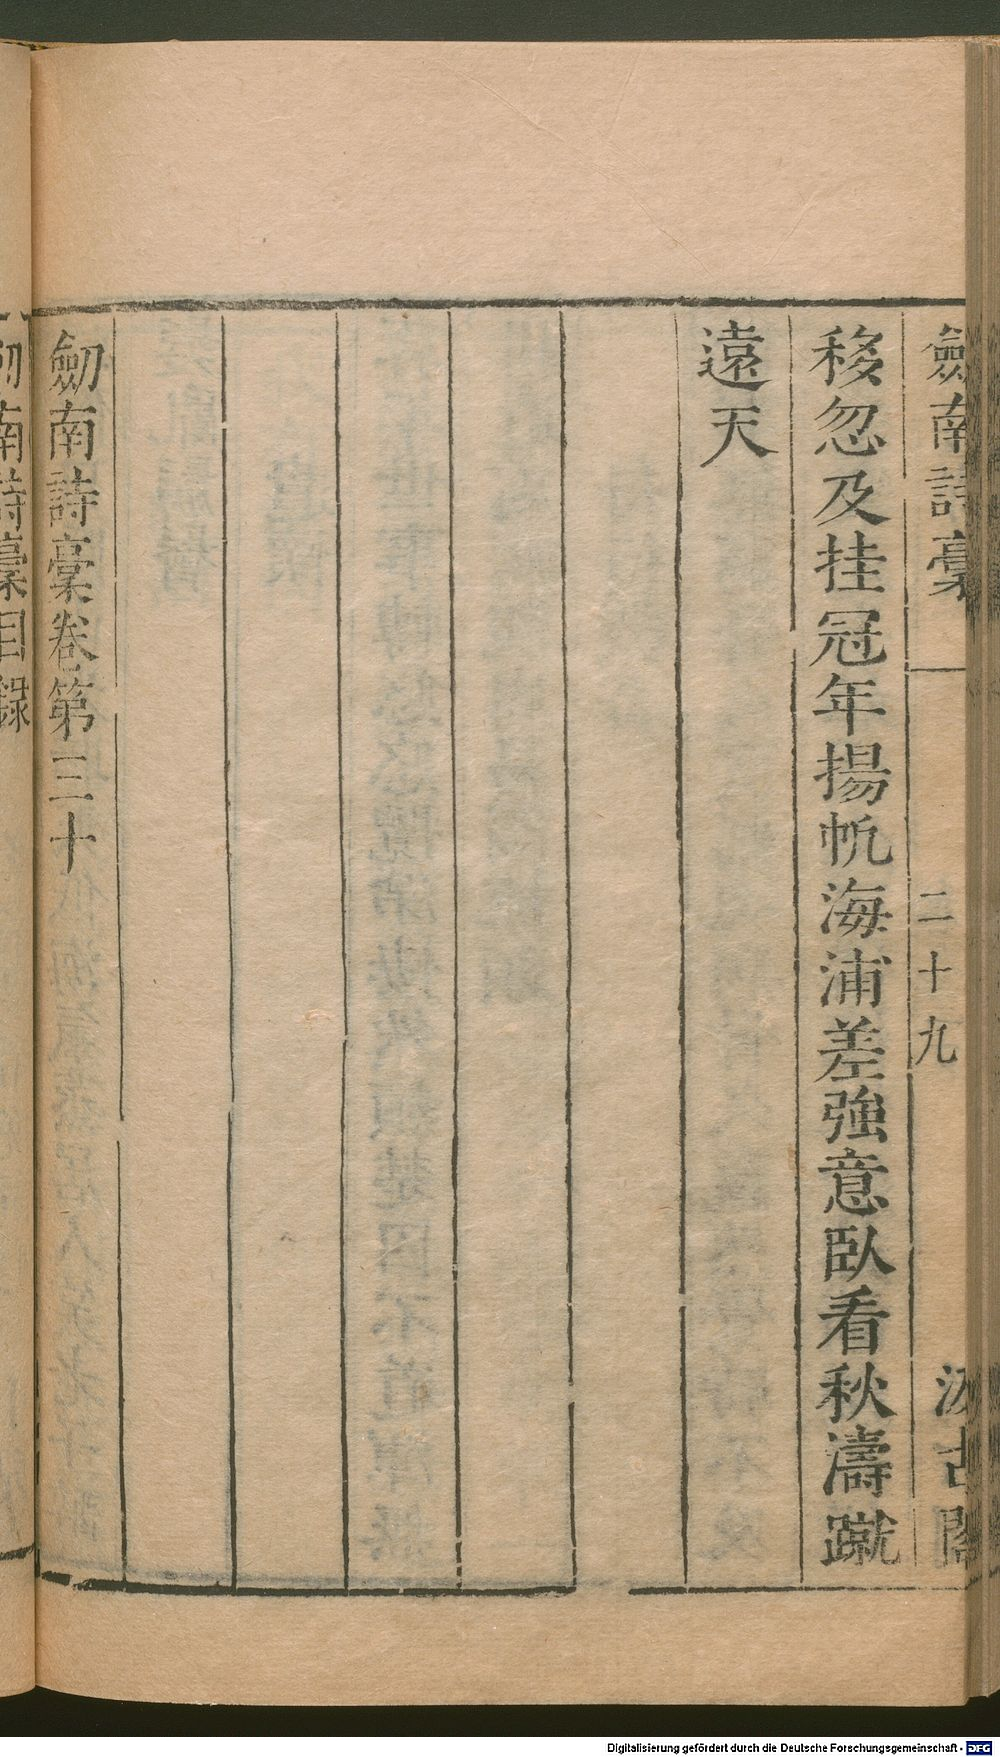 劍南詩稾
二十九
汲古閣
移忽及挂冠年揚帆海浦差強意臥看秋濤蹴
遠天
劒南詩稾卷第三十
劒南詩稾目錄
Digitalisierung gefördert durch die Deutsche Forschungsgemeinschaft - DFG